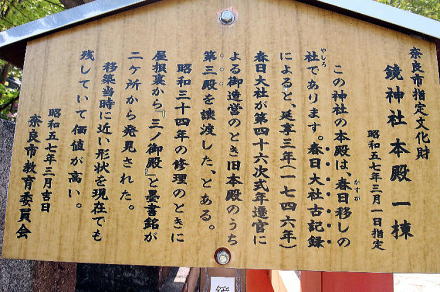 奈良市指定文化財
鏡神社 本殿 一棟
昭和五七年三月一日指定
この神社の本殿は、春日移しの
かすが
社であります。春日大社古記録
やしろ
によると、延享三年(一七四六年)
春日大社が第四十六次式年造宮に
よる御造営のとき旧本殿のうち
第三殿を譲渡した、とある。
昭和三十四年の修理のときに
屋根裏から『三ノ御殿』と墨書銘が
二ケ所から発見された。
移築当時に近い形状を現在でも
残していて価値が高い。
昭和五七年三月吉日
奈良市教育委員会